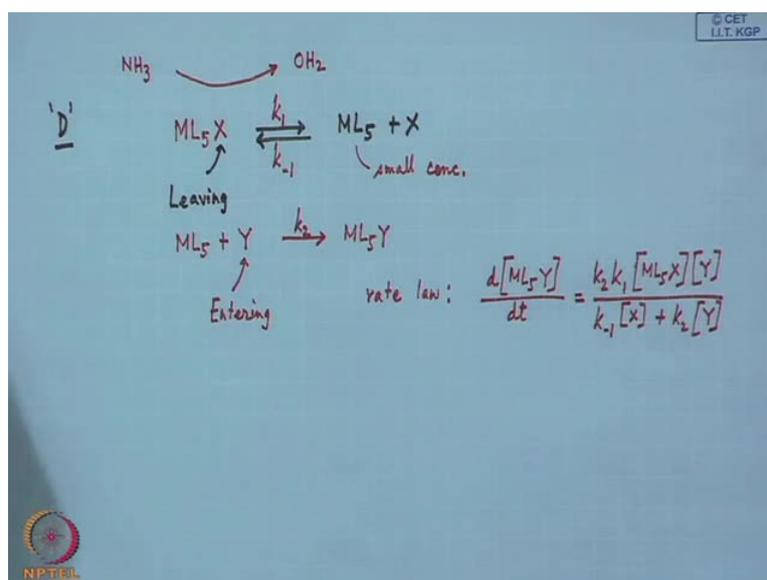 © CET
I.I.T. KGP
NH₃ OH₂
'D' ML₅X k₁ k₋₁ ML₅ + X
small conc.
Leaving
ML₅ + Y k₂ → ML₅Y
Entering
rate law: d[ML₅Y]/dt = k₂k₁[ML₅X][Y] / k₋₁[X] + k₂[Y]
NPTEL